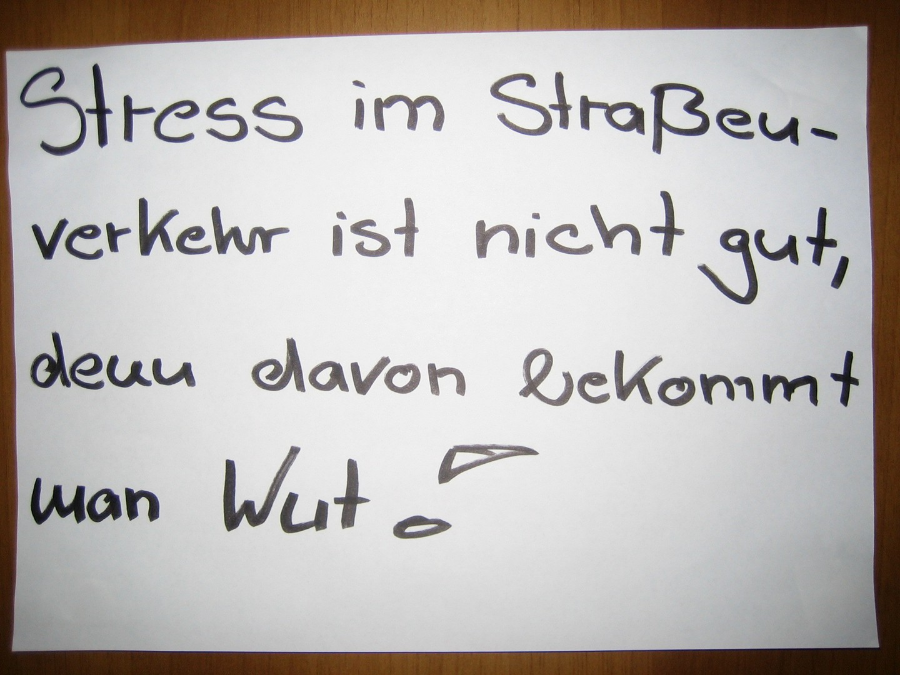 Stress im Straßen-
verkehr ist nicht gut,
denn davon bekommt
man Wut!